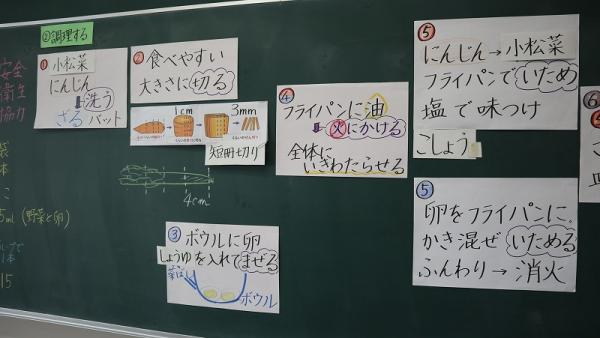 ②調理する
安全
衛生
協力
5ml (野菜と卵)
15
① 小松菜
にんじん
洗う
ざる バット
② 食べやすい
大きさに切る
1cm
3mm
短冊切り
4cm
③ ボウルに卵
しょうゆを入れてまぜる
菜ばし
ボウル
④ フライパンに油
火にかける
全体に
いきわたらせる
⑤
にんじん→小松菜
フライパンでいため
塩で味つけ
こしょう
⑤
卵をフライパンに
かき混ぜ いためる
ふんわり→消火
⑥